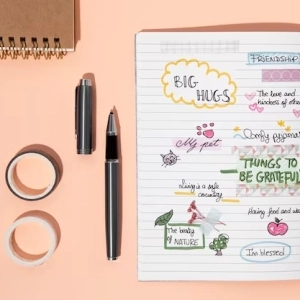 FRIENDSHIP
BIG
HUGS
The love and
kindness of others
My pet
Comfy pyjamas
THINGS TO
BE GRATEFUL
Living in a safe
country
Having food and
The beauty
of NATURE
I'm blessed